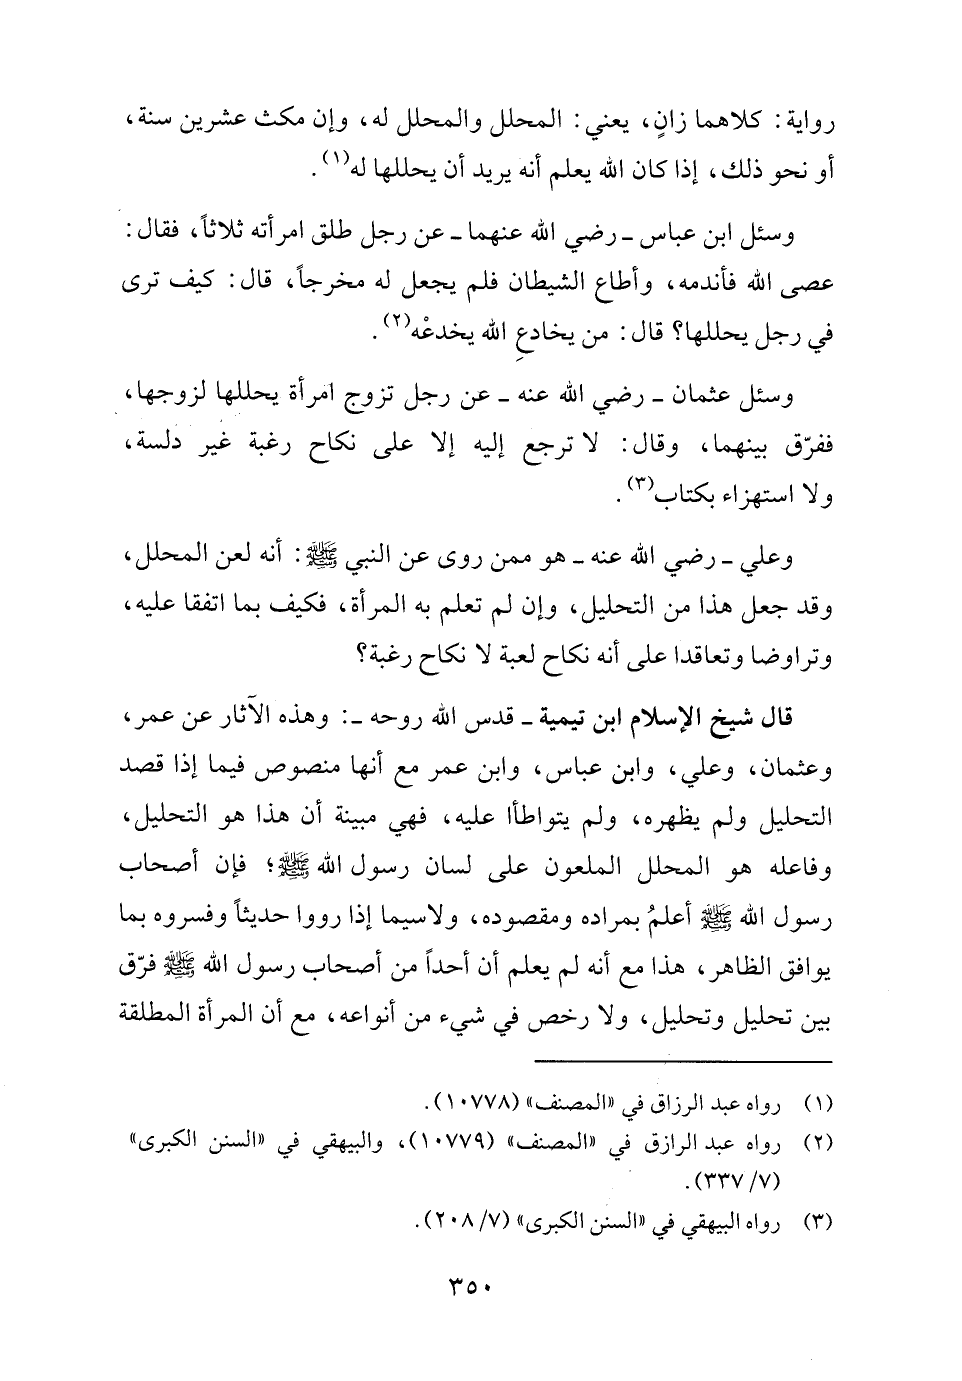 رواية: كلاهما زانٍ، يعني: المحلل والمحلل له، وإن مكث عشرين سنة،
أو نحو ذلك، إذا كان الله يعلم أنه يريد أن يحللها له(١).
وسئل ابن عباس ـ رضي الله عنهما ـ عن رجل طلق امرأته ثلاثاً، فقال:
عصى الله فأندمه، وأطاع الشيطان فلم يجعل له مخرجاً، قال: كيف ترى
في رجل يحللها؟ قال: من يخادعِ الله يخدعْه(٢).
وسئل عثمان ـ رضي الله عنه ـ عن رجل تزوج امرأة يحللها لزوجها،
ففرّق بينهما، وقال: لا ترجع إليه إلا على نكاح رغبة غير دلسة،
ولا استهزاء بكتاب(٣).
وعلي ـ رضي الله عنه ـ هو ممن روى عن النبي ﷺ: أنه لعن المحلل،
وقد جعل هذا من التحليل، وإن لم تعلم به المرأة، فكيف بما اتفقا عليه،
وتراوضا وتعاقدا على أنه نكاح لعبة لا نكاح رغبة؟
قال شيخ الإسلام ابن تيمية ـ قدس الله روحه ـ: وهذه الآثار عن عمر،
وعثمان، وعلي، وابن عباس، وابن عمر مع أنها منصوص فيما إذا قصد
التحليل ولم يظهره، ولم يتواطأا عليه، فهي مبينة أن هذا هو التحليل،
وفاعله هو المحلل الملعون على لسان رسول الله ﷺ؛ فإن أصحاب
رسول الله ﷺ أعلمُ بمراده ومقصوده، ولاسيما إذا رووا حديثاً وفسروه بما
يوافق الظاهر، هذا مع أنه لم يعلم أن أحداً من أصحاب رسول الله ﷺ فرّق
بين تحليل وتحليل، ولا رخص في شيء من أنواعه، مع أن المرأة المطلقة
(١) رواه عبد الرزاق في «المصنف» (١٠٧٧٨).
(٢) رواه عبد الرازق في «المصنف» (١٠٧٧٩)، والبيهقي في «السنن الكبرى»
(٧/ ٣٣٧).
(٣) رواه البيهقي في «السنن الكبرى» (٧/ ٢٠٨).
٣٥٠